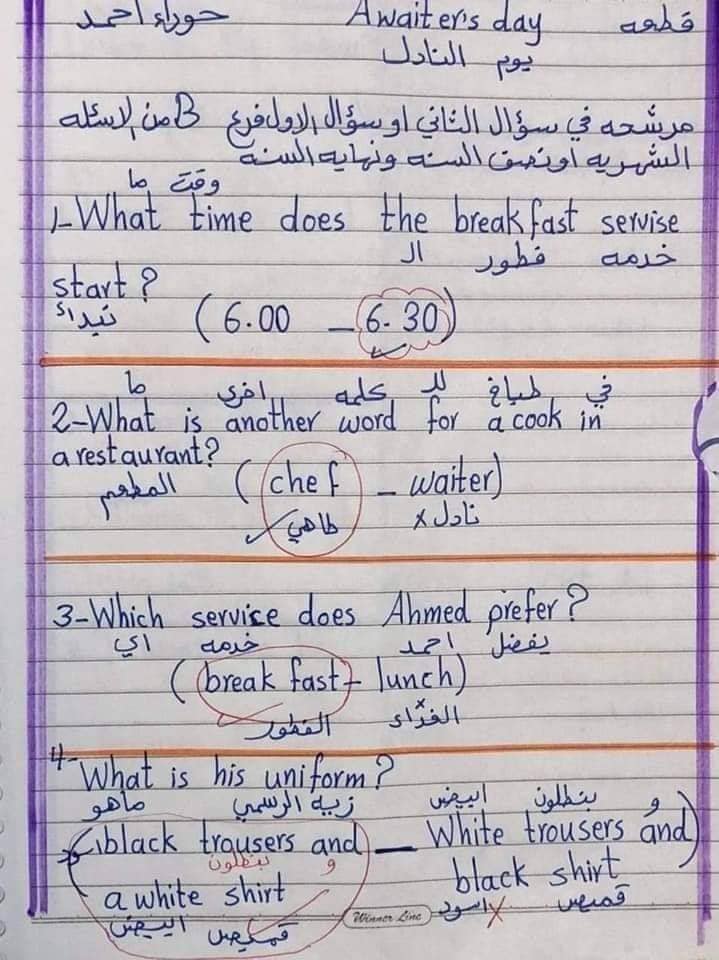 قطعه A waiter's day حوراء احمد
يوم النادل
مرشحه في سؤال الثاني او سؤال الاول فرع B من الاسئله
الشهريه او نصف السنه ونهايه السنه
وقت ما
1-What time does the breakfast servise
خدمه فطور الـ
start?
تبدأ
(6.00 - 6.30)
في طباخ لـ كلمه اخرى ما
2-What is another word for a cook in
a restaurant?
المطعم
(chef - waiter)
طاهي نادل x
3-Which service does Ahmed prefer?
يفضل احمد خدمه اي
(break fast - lunch)
الفطور الغداء
4- What is his uniform?
ماهو زيه الرسمي
و بنطلون ابيض
(black trousers and - White trousers and)
و بنطلون
a white shirt black shirt
قميص ابيض قميص اسود
Winner Line